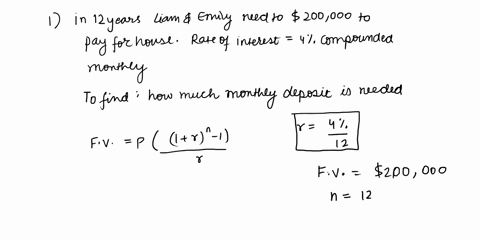 1) in 12 years Liam & Emily need to $ 200,000 to
pay for house. Rate of interest = 4% compounded
monthly
To find : how much monthly deposit is needed
F.V. = P ( (1+r)^n - 1 ) / r
r = 4% / 12
F.V. = $200,000
n = 12